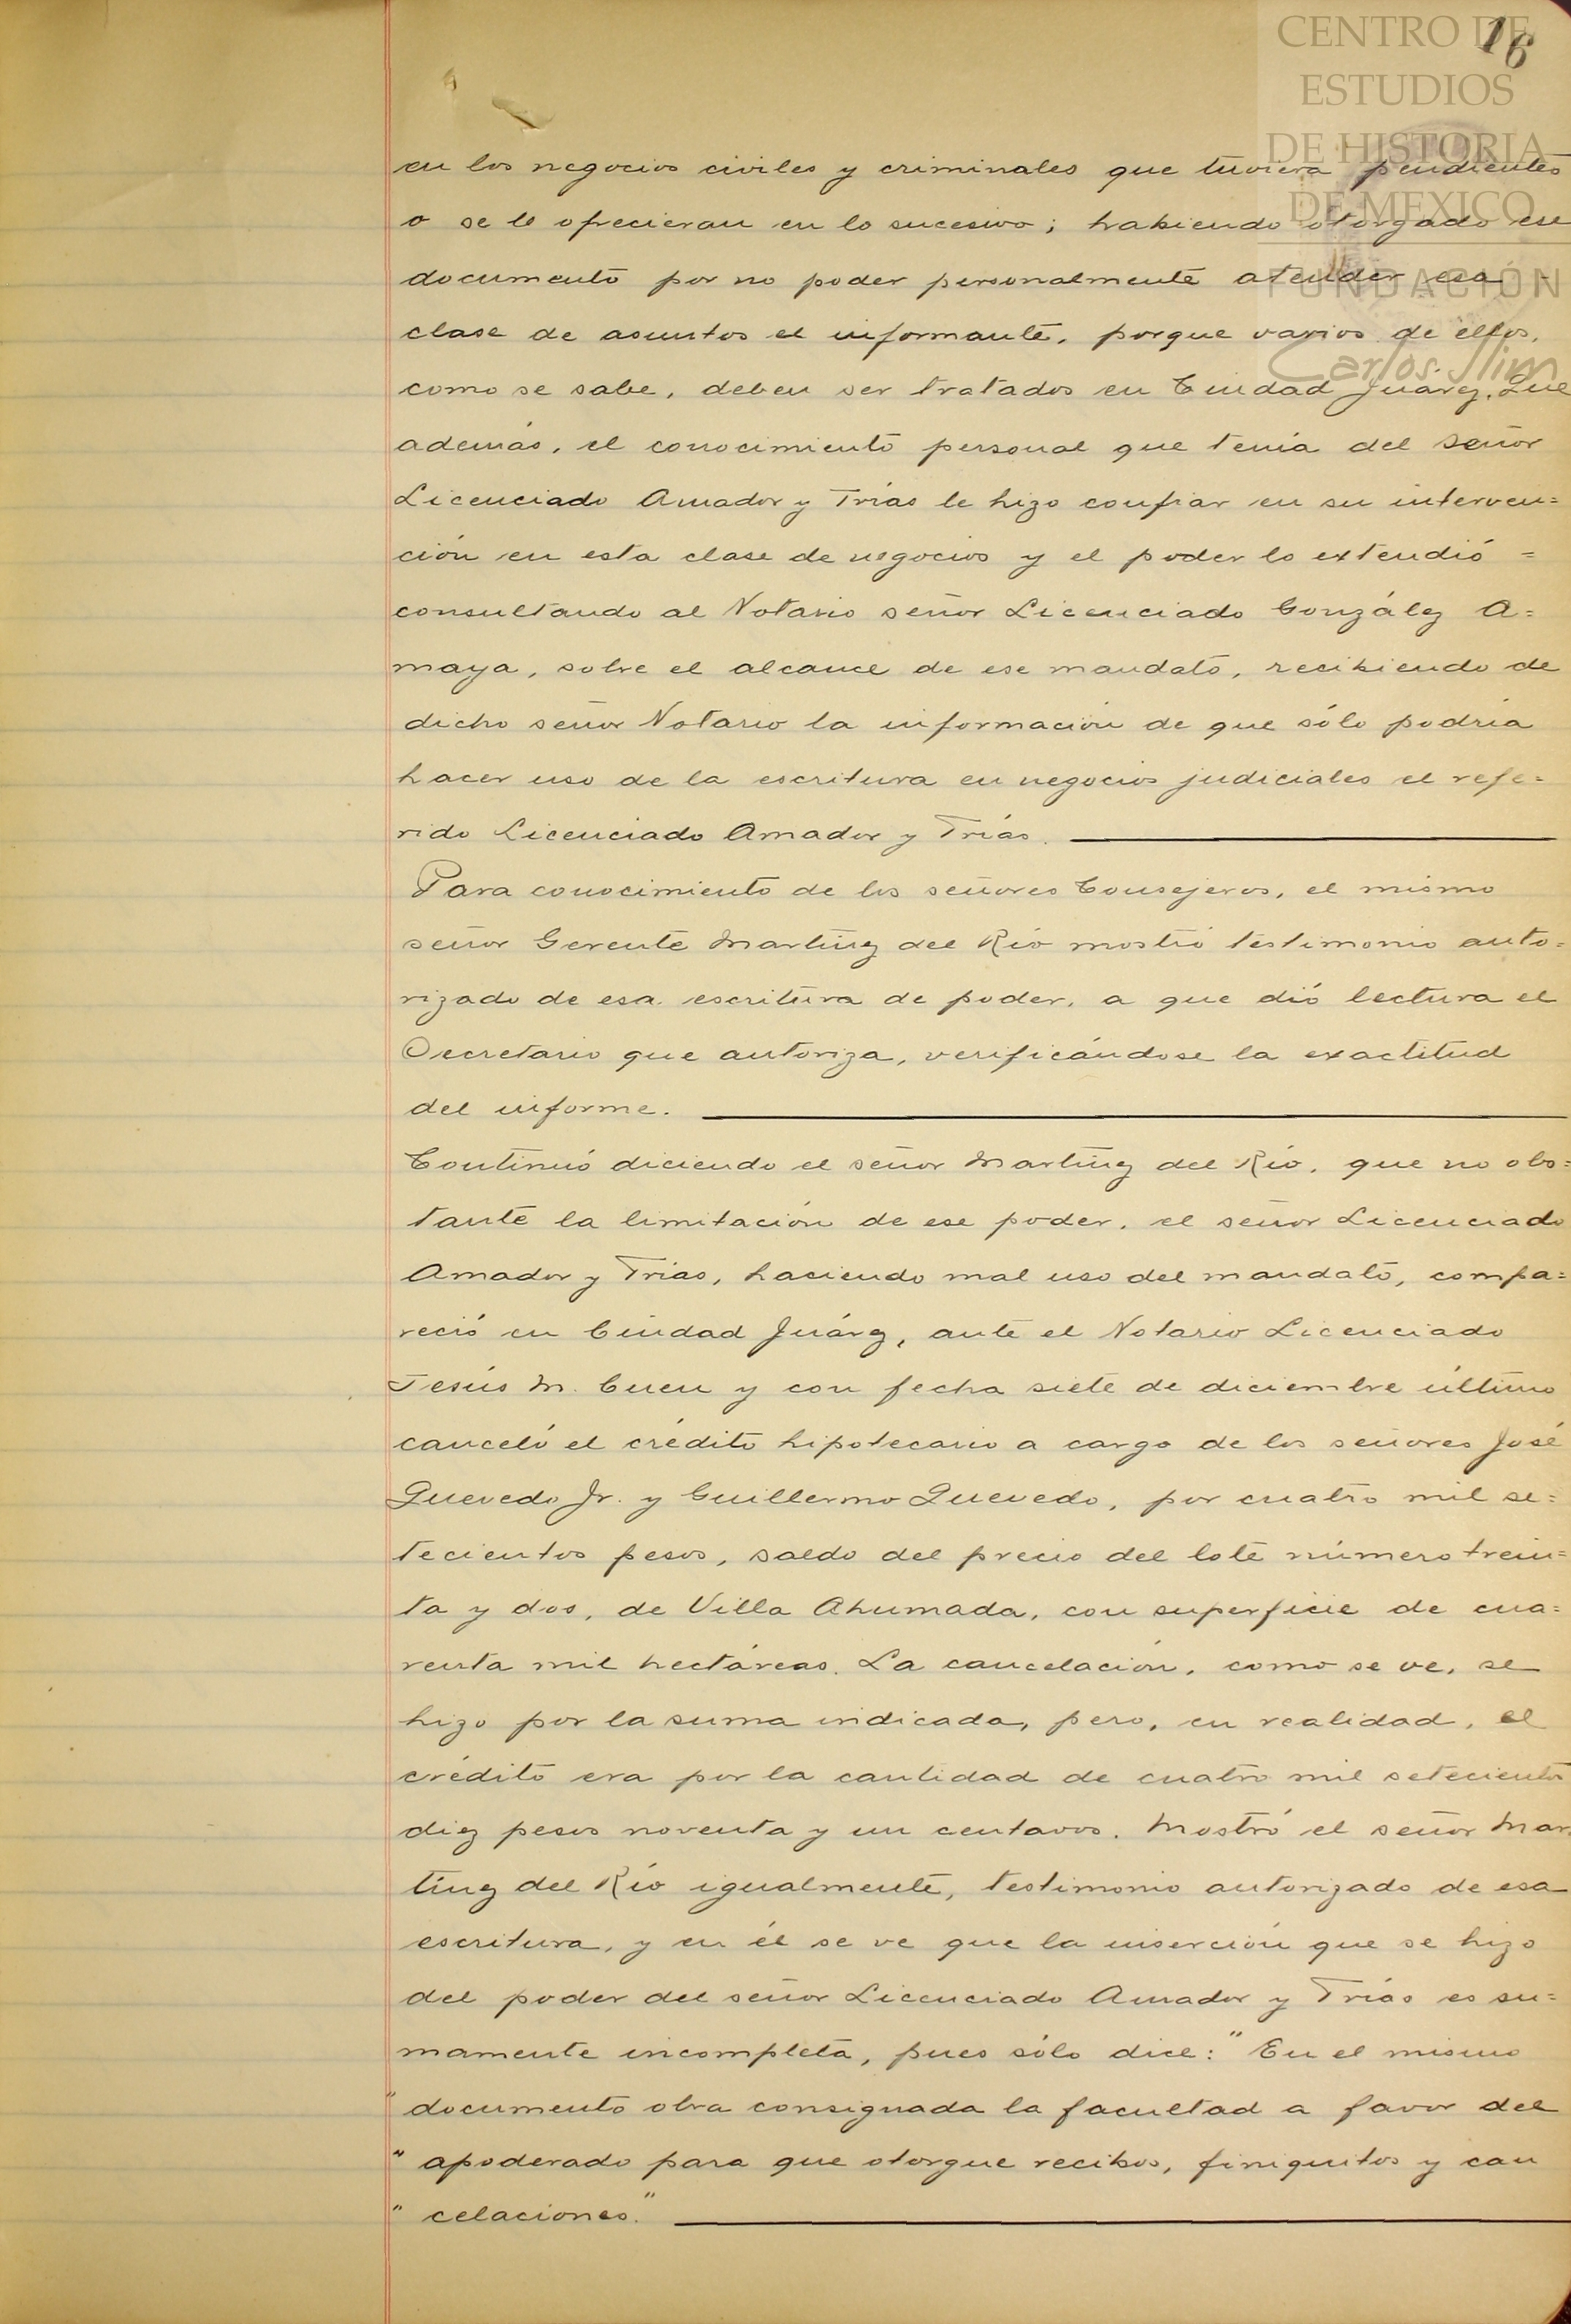 CENTRO DE
16
ESTUDIOS
DE HISTORIA
DE MEXICO
FUNDACIÓN
Carlos Slim
en los negocios civiles y criminales que tuviera pendientes
o se le ofrecieran en lo sucesivo; habiendo otorgado ese
documento por no poder personalmente atender esa
clase de asuntos el informante, porque varios de ellos,
como se sabe, deben ser tratados en Ciudad Juárez. Que
además, el conocimiento personal que tenía del señor
Licenciado Amador y Trías le hizo confiar en su interven=
ción en esta clase de negocios y el poder lo extendió =
consultando al Notario señor Licenciado González A=
maya, sobre el alcance de ese mandato, recibiendo de
dicho señor Notario la información de que sólo podría
hacer uso de la escritura en negocios judiciales el refe=
rido Licenciado Amador y Trías.
Para conocimiento de los señores Consejeros, el mismo
señor Gerente Martínez del Río mostró testimonio auto=
rizado de esa escritura de poder, a que dió lectura el
Secretario que autoriza, verificándose la exactitud
del informe.
Continuó diciendo el señor Martínez del Río, que no obs=
tante la limitación de ese poder, el señor Licenciado
Amador y Trías, haciendo mal uso del mandato, compa=
reció en Ciudad Juárez, ante el Notario Licenciado
Jesús M. Cuen y con fecha siete de diciembre último
canceló el crédito hipotecario a cargo de los señores José
Quevedo Jr. y Guillermo Quevedo, por cuatro mil se=
tecientos pesos, saldo del precio del lote número trein=
ta y dos, de Villa Ahumada, con superficie de cua=
renta mil hectáreas. La cancelación, como se ve, se
hizo por la suma indicada, pero, en realidad, el
crédito era por la cantidad de cuatro mil setecientos
diez pesos noventa y un centavos. Mostró el señor Mar
tínez del Río igualmente, testimonio autorizado de esa
escritura, y en él se ve que la inserción que se hizo
del poder del señor Licenciado Amador y Trías es su=
mamente incompleta, pues sólo dice: "En el mismo
"documento obra consignada la facultad a favor del
"apoderado para que otorgue recibos, finiquitos y can
"celaciones."